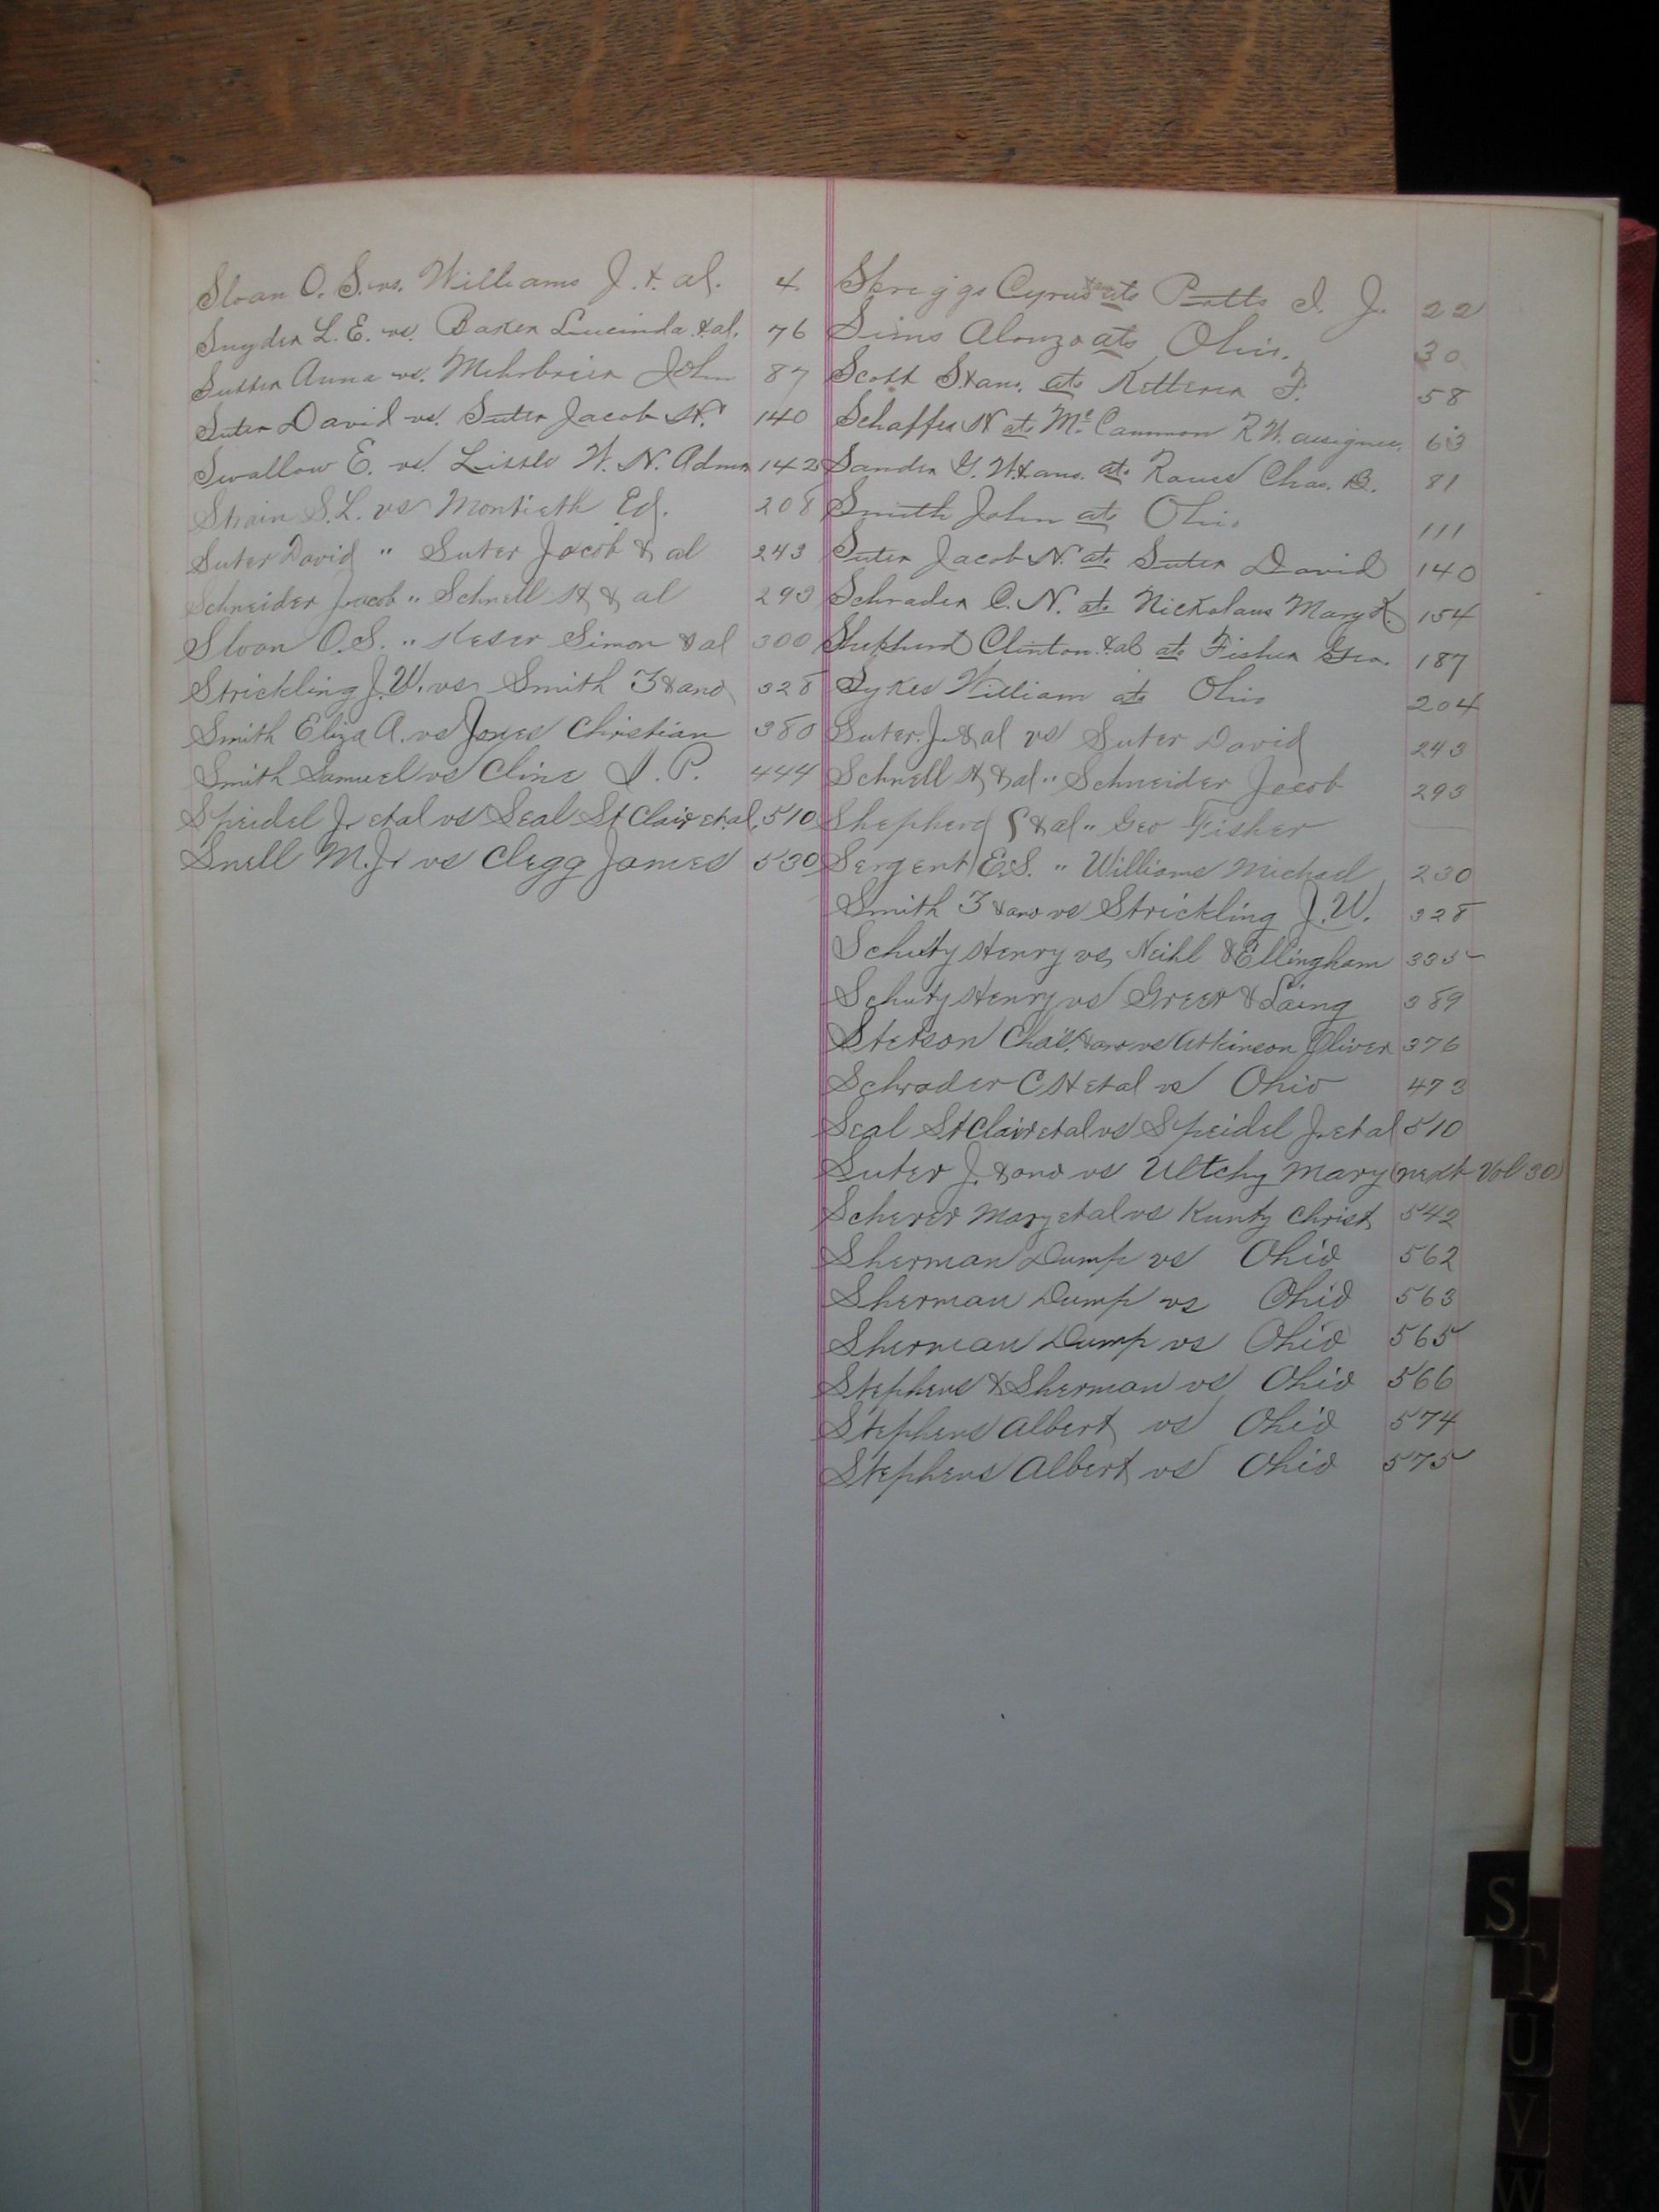 Sloan O. S. vs. Williams J. & al. 4
Snyder L. E. vs. Baker Lucinda & al. 76
Sutter Anna vs. Mehrbreier John 87
Suter David vs. Suter Jacob H. 140
Swallow E. vs. Little W. N. Admr 142
Strain S. L. vs Montieth Ed. 208
Suter David " Suter Jacob & al 243
Schneider Jacob " Schnell H & al 293
Sloan O.S. " Keser Simon & al 300
Strickling J. W. vs Smith F & ano 328
Smith Eliza A. vs Jones Christian 380
Smith Samuel vs Cline I. P. 444
Speidel J. et al vs Seal St Clair et al. 510
Snell M. Jr vs Clegg James 530
Skriggs Cyrus & an ats Potts I. J. 22
Sims Alonzo ats Ohio. 30
Scott S & ano. ats Ketterer F. 58
Schaffer N ats Mc Cammon R W. assignee. 63
Sander G. W. & ano. ats Raws Chas. B. 81
Smith John ats Ohio 111
Suter Jacob N. ats Suter David 140
Schrader C. N. ats Nickolaus Mary K. 154
Shepherd Clinton & al ats Fisher Geo. 187
Sykes William ats Ohio 204
Suter. J. & al vs Suter David 243
Schnell H & al " Schneider Jacob 293
Shepherd & al " Geo Fisher
Sergent E.S. " Williams Michael 230
Smith F & ano vs Strickling J. W. 328
Schuty Henry vs Neihl & Ellingham 335
Schuty Henry vs Greer & Laing 389
Stetson Chas. & ano vs Atkinson Oliver 376
Schrader C H et al vs Ohio 473
Seal St Clair et al vs Speidel J. et al 510
Suter J. & ano vs Ultchy Mary (next Vol 30)
Scherer Mary et al vs Kunty Christ 542
Sherman Dump vs Ohio 562
Sherman Dump vs Ohio 563
Sherman Dump vs Ohio 565
Stephens & Sherman vs Ohio 566
Stephens Albert vs Ohio 574
Stephens Albert vs Ohio 575
S
T
U
V
W